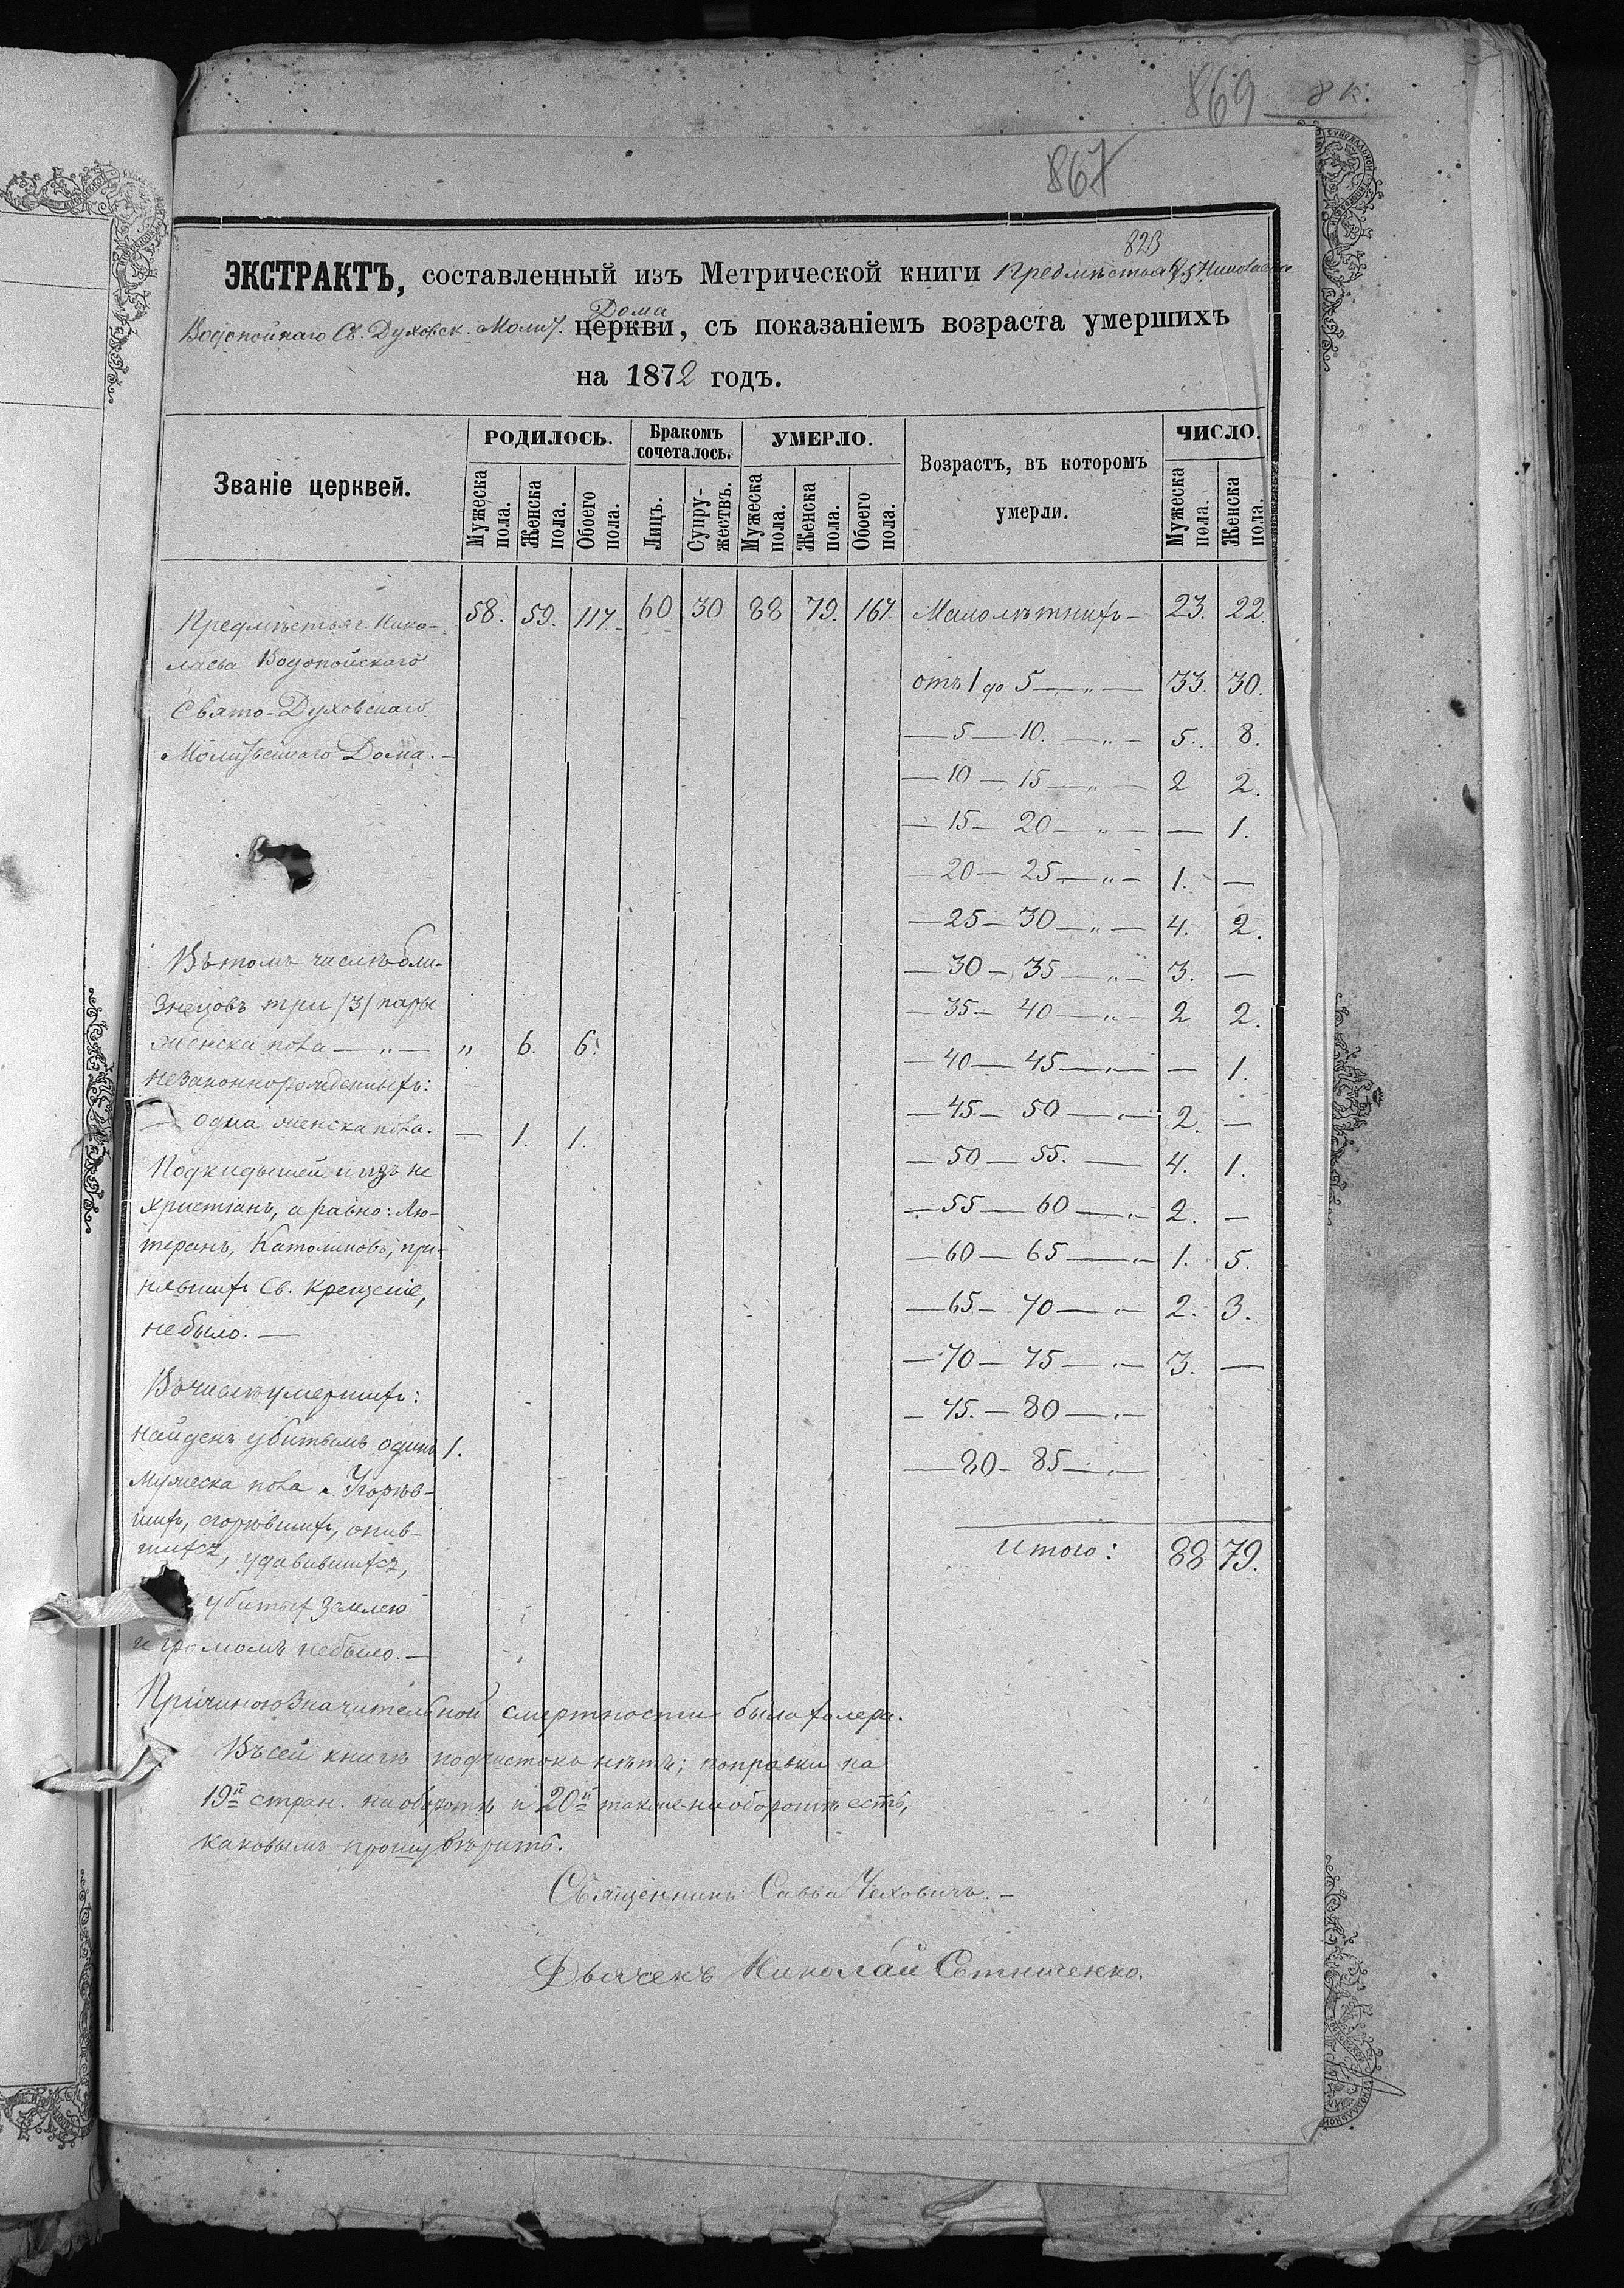 869 8 к.
867
823
ЭКСТРАКТЪ, составленный изъ Метрической книги Предмѣстья г. Николаева
Водопойнаго Св. Духовск. Молит. Дома церкви, съ показаніемъ возраста умершихъ
на 1872 годъ.
Званіе церквей. РОДИЛОСЬ. Бракомъ сочеталось. УМЕРЛО. Возрастъ, въ которомъ умерли. ЧИСЛО.
Мужеска пола. Женска пола. Обоего пола. Лицъ. Супружествъ. Мужеска пола. Женска пола. Обоего пола. Мужеска пола. Женска пола.
Предмѣстья г. Нико- 58. 59. 117. 60 30 88 79. 167. Малолѣтнихъ — 23. 22.
лаева Водопойскаго
отъ 1 до 5 — „ — 33. 30.
Свято-Духовскаго
— 5 — 10. — „ — 5. 8.
Молитвеннаго Дома. —
— 10 — 15 — „ — 2 2.
— 15 — 20 — „ — — 1.
— 20 — 25 — „ — 1. —
— 25 — 30 — „ — 4. 2.
Въ томъ числѣ бли-
— 30 — 35 — „ — 3. —
знецовъ три /3/ пары
— 35 — 40 — „ — 2 2.
женска пола — „ — „ 6. 6.
— 40 — 45 — „ — — 1.
незаконнорожденныхъ:
— 45 — 50 — „ — 2. —
— одна женска пола. — 1. 1.
— 50 — 55. — 4. 1.
Подкидышей и изъ не
христіанъ, а равно: Лю-
— 55 — 60 — „ 2. —
теранъ, Католиковъ, при-
— 60 — 65 — „ 1. 5.
нявшихъ Св. Крещеніе,
— 65 — 70 — „ — 2. 3.
не было. —
— 70 — 75 — „ — 3. —
Въ числѣ умершихъ:
— 75. — 80 — „ —
найденъ убитымъ одинъ 1.
— 80 — 85 — „ —
мужеска пола. Угорѣв-
шихъ, сгорѣвшихъ, опив-
шихся, удавившихся,
Итого: 88 79.
убитыхъ землею
и громомъ небыло. —
Причиною значительной смертности была холера.
Въ сей книгѣ подчистокъ нѣтъ; поправки на
19й стран. на оборотѣ и 20й также на оборотѣ есть,
каковымъ прошу вѣрить.
Священникъ Савва Чехович. —
Дьячекъ Николай Сотниченко.